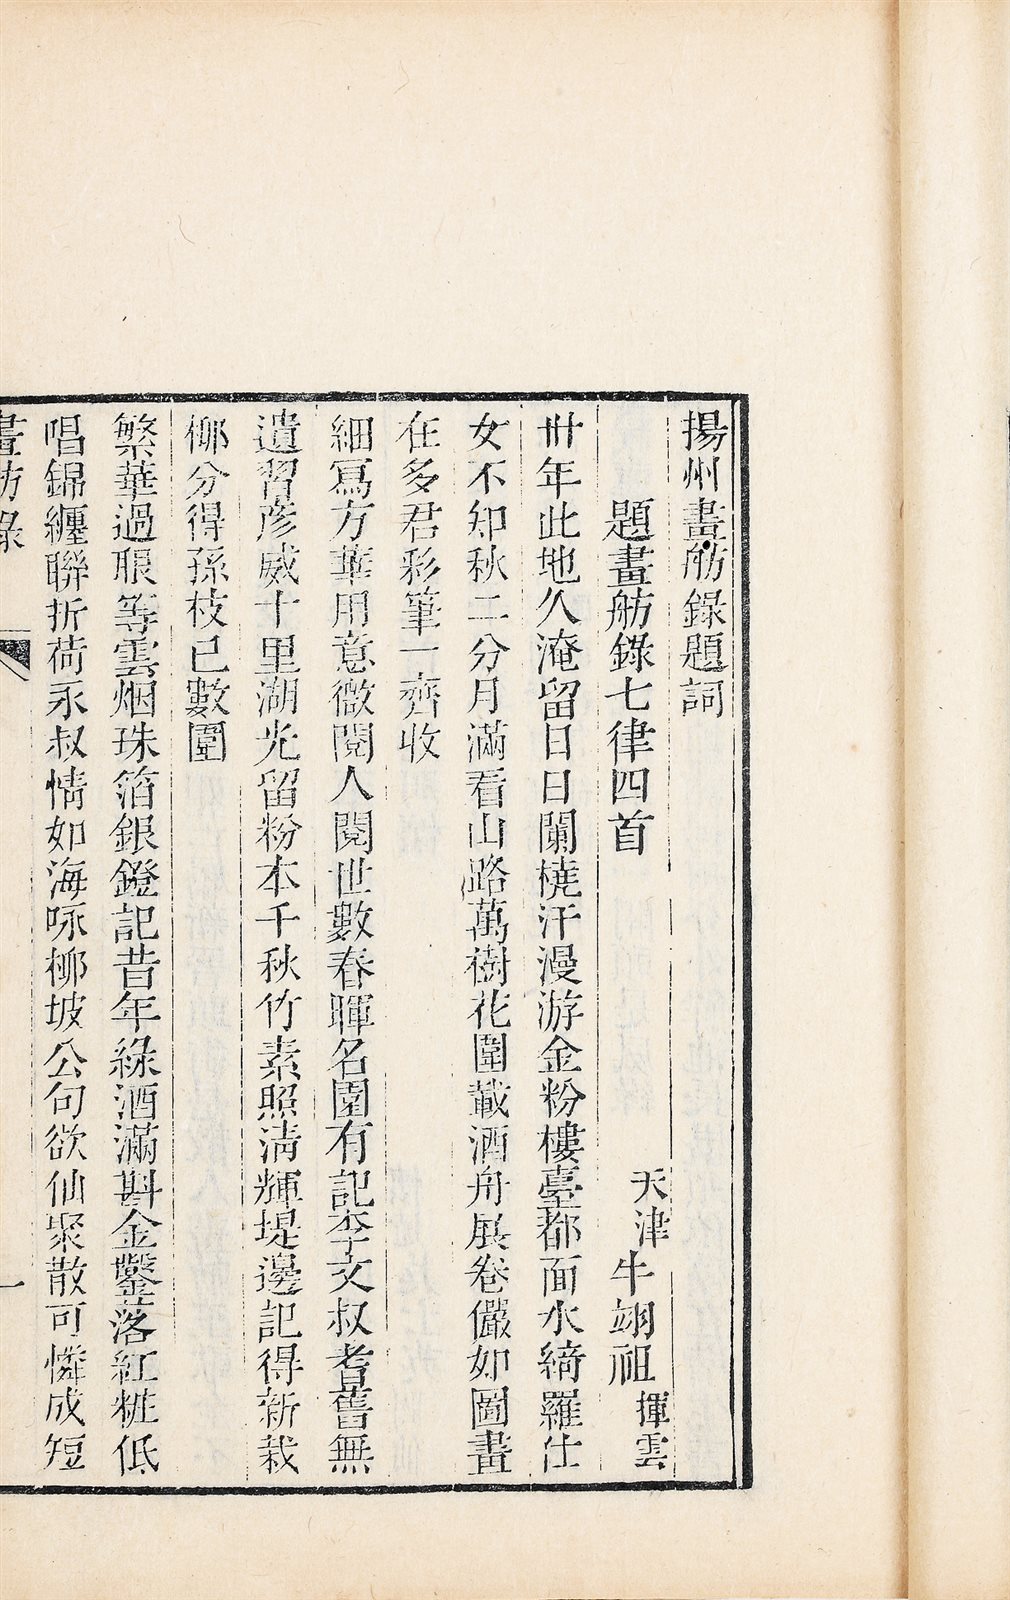 揚州畫舫錄題詞
題畫舫錄七律四首
天津牛翊祖揮雲
卅年此地久淹留日日闌橈汗漫游金粉樓臺都面水綺羅仕
女不知秋二分月滿看山路萬樹花圍載酒舟展卷儼如圖畫
在多君彩筆一齊收
細寫方華用意微閱人閱世數春暉名園有記李文叔耆舊無
遺習彥威十里湖光留粉本千秋竹素照淸輝堤邊記得新栽
柳分得孫枝已數圍
繁華過眼等雲烟珠箔銀鐙記昔年綠酒滿斟金鑿落紅粧低
唱錦纏聯折荷永叔情如海咏柳坡公句欲仙聚散可憐成短
畫舫錄
一